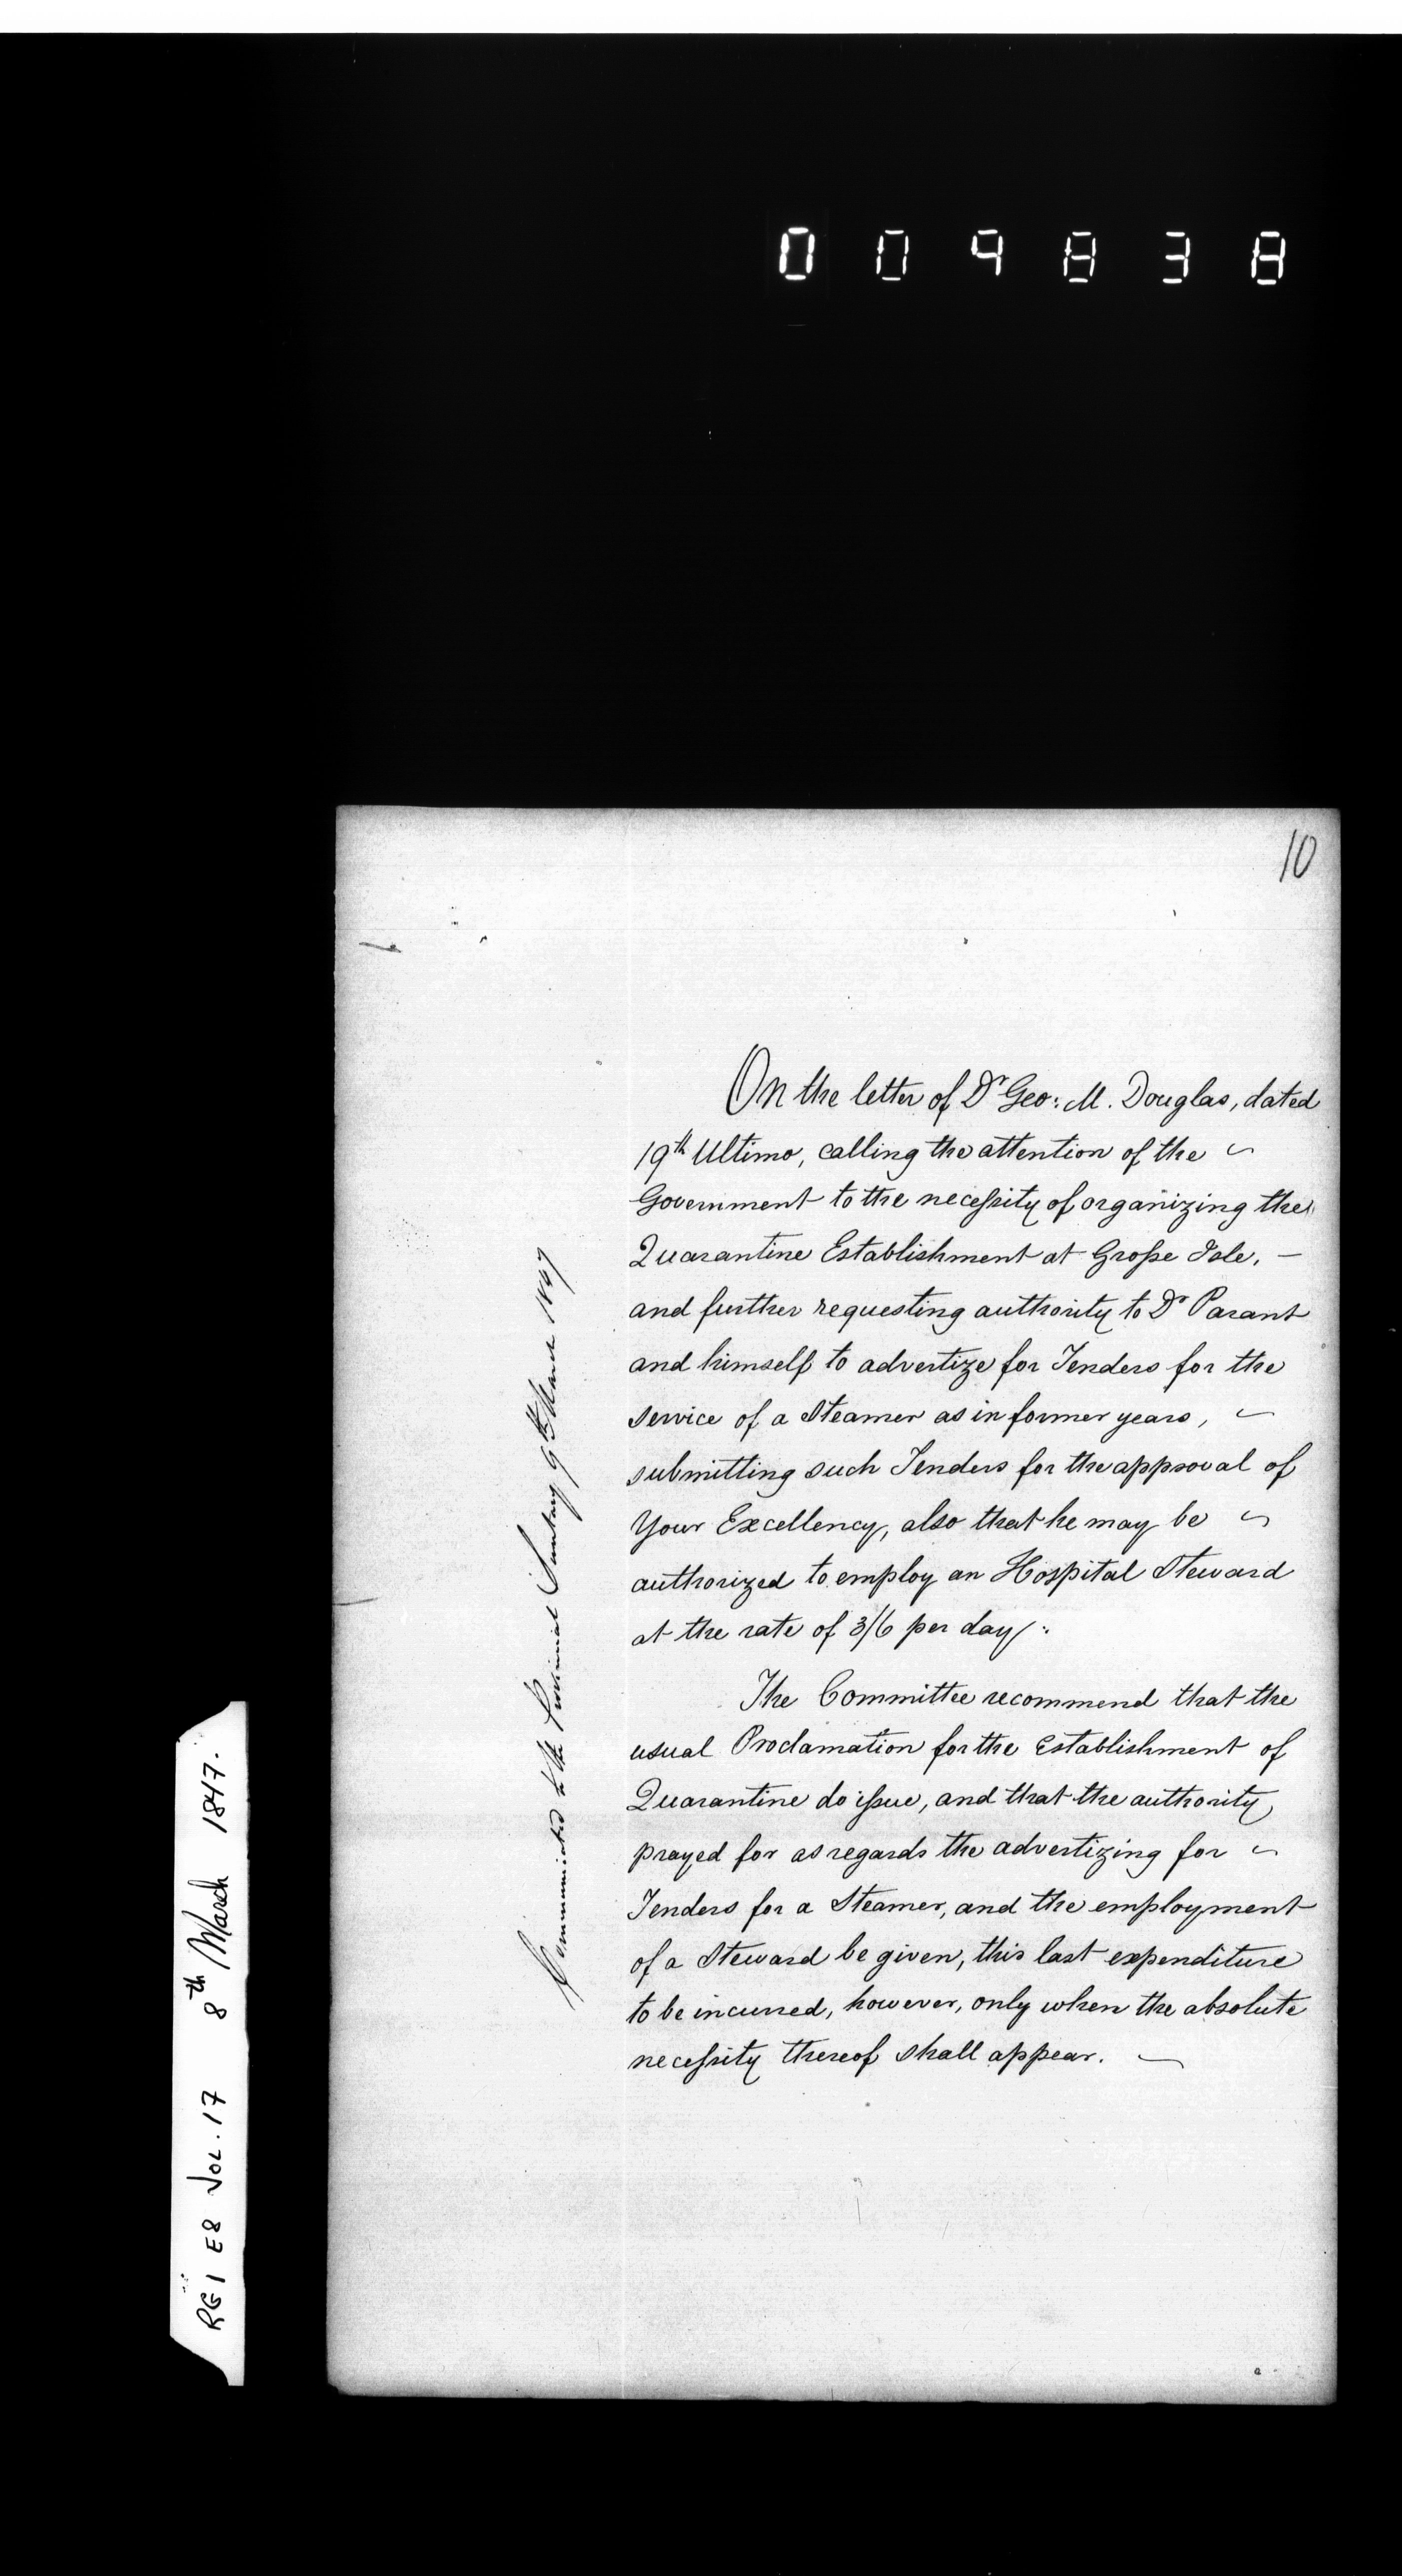 004838
10
On the letter of Dr Geo: M. Douglas, dated
19th Ultimo, calling the attention of the
Government to the necessity of organizing the
Quarantine Establishment at Grosse Isle,
and further requesting authority to Dr Parant
and himself to advertize for Tenders for the
service of a Steamer as in former years,
submitting such Tenders for the approval of
Your Excellency, also that he may be
authorized to employ an Hospital Steward
at the rate of 3/6 per day.
The Committee recommend that the
usual Proclamation for the Establishment of
Quarantine do issue, and that the authority
prayed for as regards the advertizing for
Tenders for a Steamer, and the employment
of a Steward be given, this last expenditure
to be incurred, however, only when the absolute
necessity thereof shall appear.
Communicated to the Provincial Secretary 9th March 1847
RG1 E8 VOL. 17 8th March 1847.